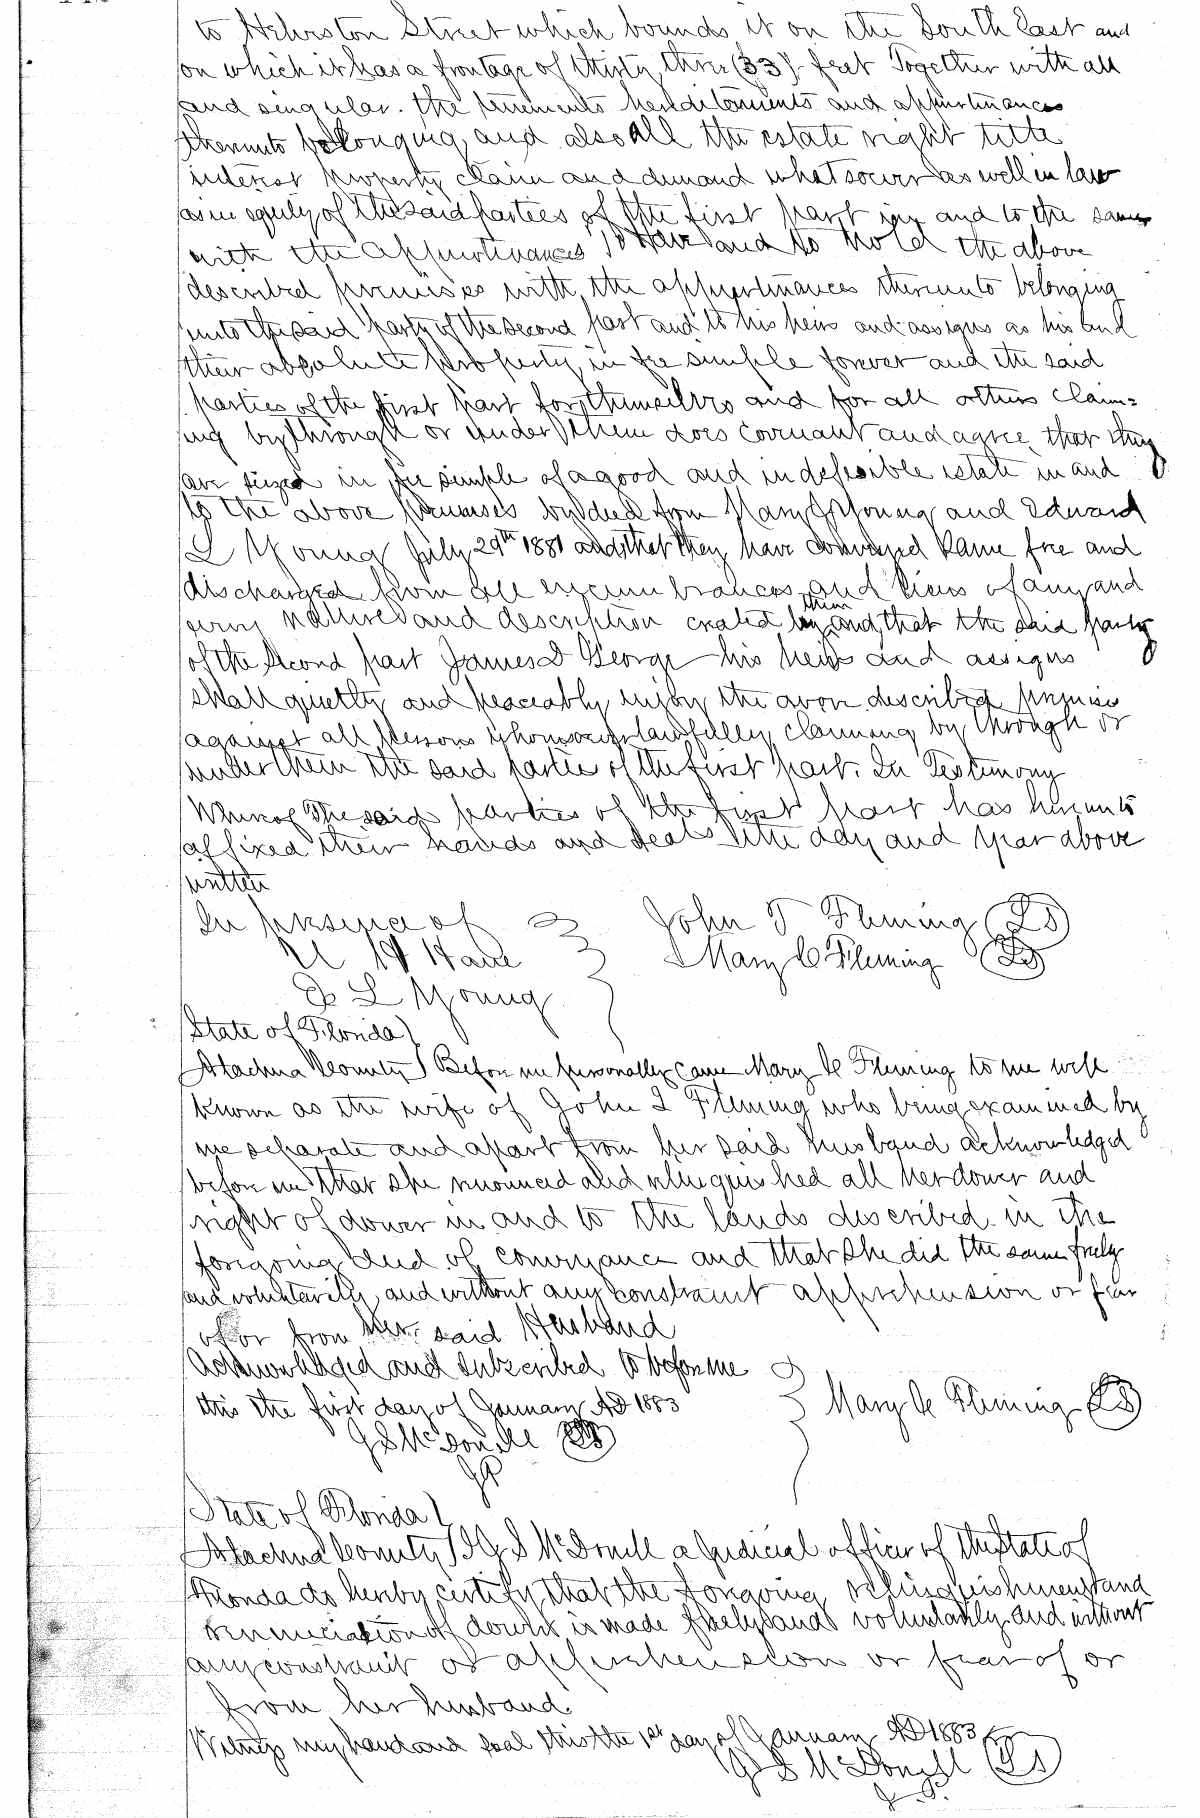 to Street which bounds it on the South East and
on which it has a frontage of thirty three (33) feet Together with all
and singular. the tenements hereditaments and appurtinances
thereunto belonging and also all the estate right title
interest property claim and demand whatsoever as well in law
as in equity of the said parties of the first part in and to the same
with the appurtinances To Have and to hold the above
described premises with the appurtinances thereunto belonging
unto the said party of the second part and to his heirs and assigns as his and
their absolute property in fee simple forever and the said
parties of the first part for themselves and for all others claim=
ing by through or under them does covenant and agree that they
are seized in fee simple of a good and indefesible estate in and
to the above premises by deed from Mary Young and Edward
L Young July 29th 1881 and that they have conveyed same free and
discharged from all incumbrances and liens of any and
every nature and description created by them and that the said party
of the second part James D George his heirs and assigns
shall quietly and peaceably enjoy the above described premises
against all persons whomsoever lawfully claiming by through or
under them the said parties of the first part. In Testimony
Whereof The said parties of the first part has hereunto
affixed their hands and seals the day and year above
written
In presence of John T Fleming LS
Mary C Fleming LS
E L Young
State of Florida)
Alachua County) Before me personally came Mary C Fleming to me well
known as the wife of John T Fleming who being examined by
me separate and apart from her said husband acknowledged
before me that she renounced and relinquished all her dower and
right of dower in and to the lands described in the
foregoing deed of conveyance and that she did the same freely
and voluntarily and without any constraint apprehension or fear
of or from her said Husband
Acknowledged and subscribed to before me
this the first day of January AD 1883 Mary C Fleming LS
G S McDonell LS
JP
State of Florida)
Alachua County) I G S McDonell a judicial officer of the State of
Florida do hereby certify that the foregoing relinquishment and
renunciation of dower is made freely and voluntarily and without
any constraint or apprehension or fear of or
from her husband.
Witness my hand and seal this the 1st day of January AD 1883
G S McDonell LS
J.P.